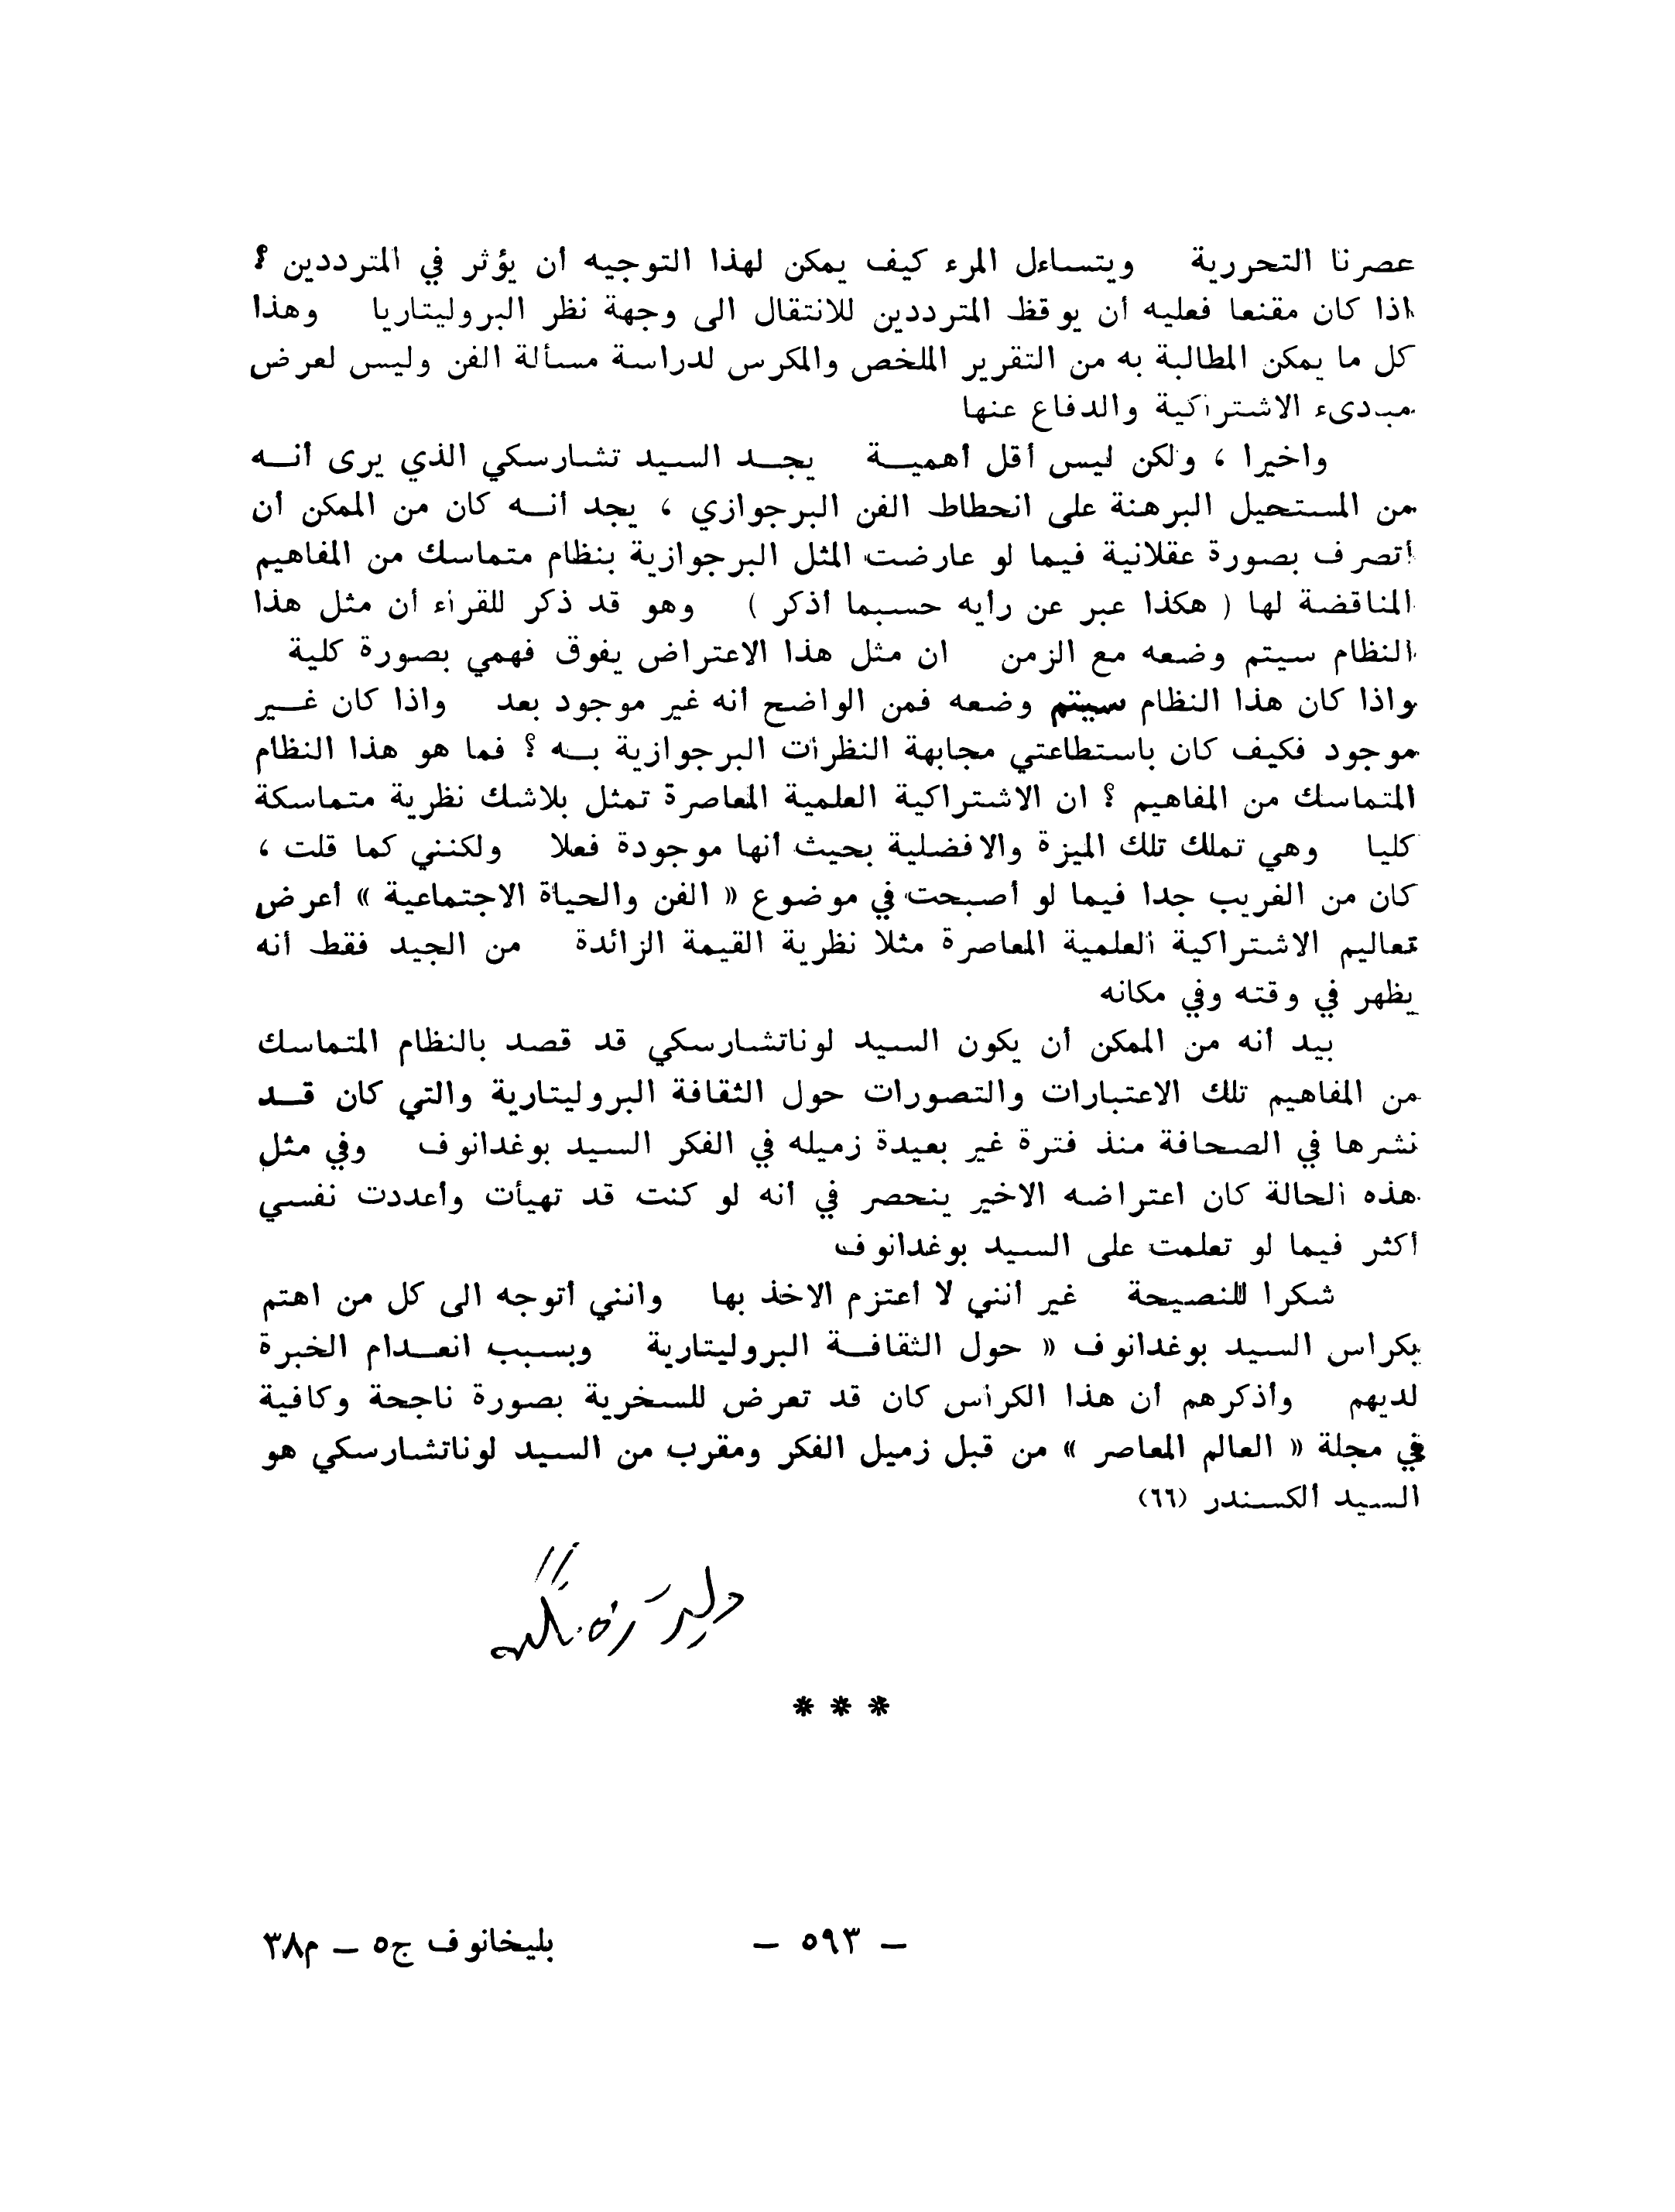 عصرنا التحررية ويتساءل المرء كيف يمكن لهذا التوجيه أن يؤثر في المترددين ؟
اذا كان مقنعا فعليه أن يوقظ المترددين للانتقال الى وجهة نظر البروليتاريا وهذا
كل ما يمكن المطالبة به من التقرير الملخص والمكرس لدراسة مسألة الفن وليس لعرض
مبدىء الاشتراكية والدفاع عنها
واخيرا ، ولكن ليس أقل أهميــة يجــد السيد تشارسكي الذي يرى أنــه
من المستحيل البرهنة على انحطاط الفن البرجوازي ، يجد أنــه كان من الممكن أن
أتصرف بصورة عقلانية فيما لو عارضت المثل البرجوازية بنظام متماسك من المفاهيم
المناقضة لها ( هكذا عبر عن رأيه حسبما أذكر ) وهو قد ذكر للقراء أن مثل هذا
النظام سيتم وضعه مع الزمن ان مثل هذا الاعتراض يفوق فهمي بصورة كلية
واذا كان هذا النظام سيتم وضعه فمن الواضح أنه غير موجود بعد واذا كان غــير
موجود فكيف كان باستطاعتي مجابهة النظرات البرجوازية بــه ؟ فما هو هذا النظام
المتماسك من المفاهيم ؟ ان الاشتراكية العلمية المعاصرة تمثل بلاشك نظرية متماسكة
كليا وهي تملك تلك الميزة والافضلية بحيث أنها موجودة فعلا ولكنني كما قلت ،
كان من الغريب جدا فيما لو أصبحت في موضوع « الفن والحياة الاجتماعية » أعرض
تعاليم الاشتراكية العلمية المعاصرة مثلا نظرية القيمة الزائدة من الجيد فقط أنه
يظهر في وقته وفي مكانه
بيد أنه من الممكن أن يكون السيد لوناتشارسكي قد قصد بالنظام المتماسك
من المفاهيم تلك الاعتبارات والتصورات حول الثقافة البروليتارية والتي كان قــد
نشرها في الصحافة منذ فترة غير بعيدة زميله في الفكر السيد بوغدانوف وفي مثل
هذه الحالة كان اعتراضه الاخير ينحصر في أنه لو كنت قد تهيأت وأعددت نفسي
أكثر فيما لو تعلمت على السيد بوغدانوف
شكرا للنصيحة غير أنني لا أعتزم الاخذ بها وانني أتوجه الى كل من اهتم
بكراس السيد بوغدانوف « حول الثقافــة البروليتارية وبسبب انعــدام الخبرة
لديهم وأذكرهم أن هذا الكراس كان قد تعرض للسخرية بصورة ناجحة وكافية
في مجلة « العالم المعاصر » من قبل زميل الفكر ومقرب من السيد لوناتشارسكي هو
السيد الكسندر (٦٦)
* * *
– ٥٩٣ –
بليخانوف ج٥ – م٣٨